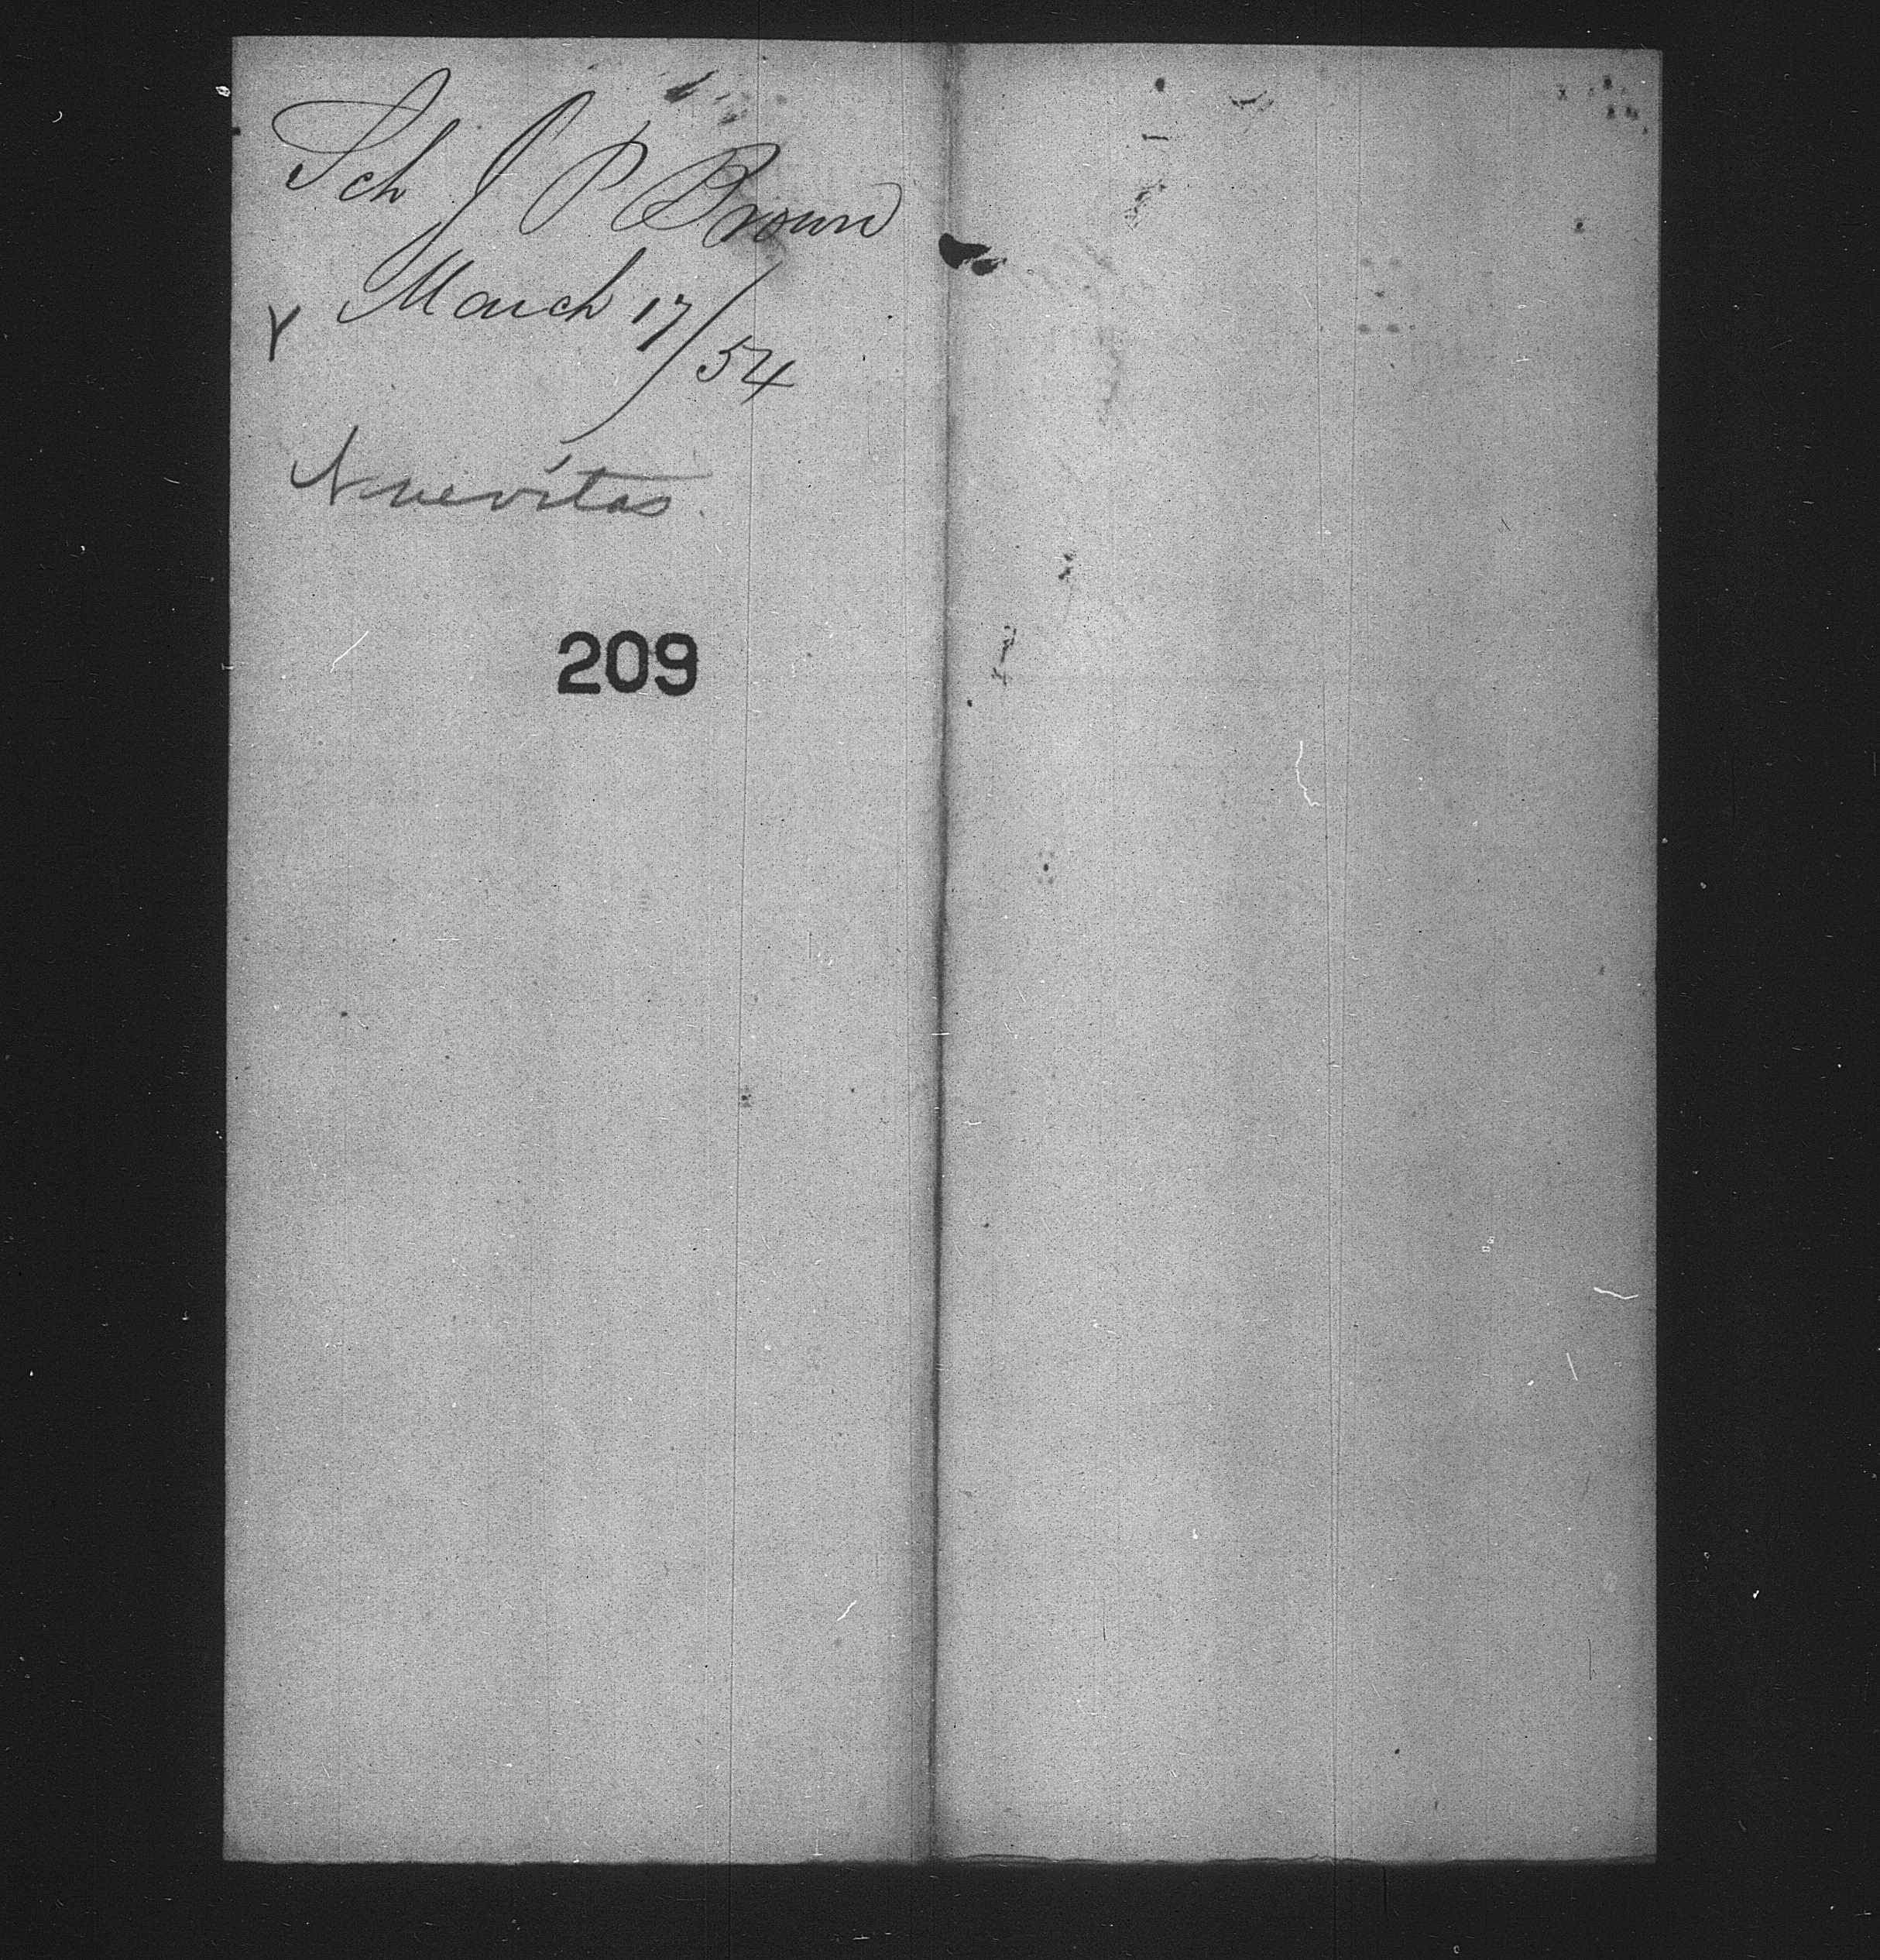 Sch J P Brown
March 17/54
Y
Nuevitas.
209